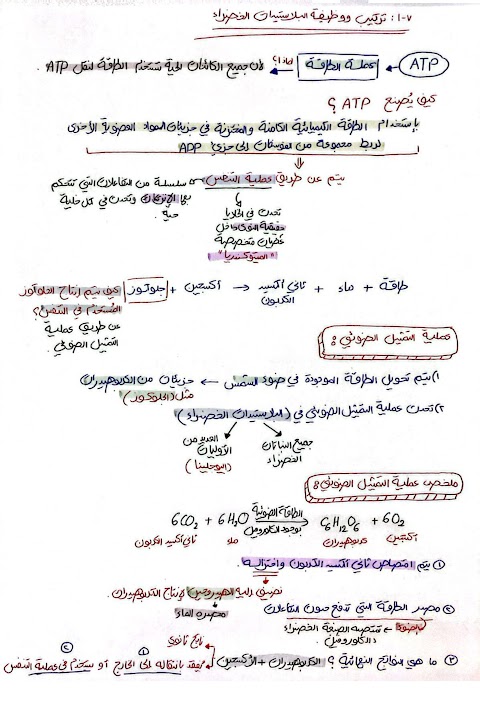 ٧-١: تركيب ووظيفة البلاستيدات الخضراء
ATP عملة الطاقة لماذا؟ لأن جميع الكائنات الحية تستخدم الطاقة لنقل ATP.
كيف يُصنع ATP ؟
بإستخدام الطاقة الكيميائية الكامنة والمختزنة في جزيئات المواد العضوية الأخرى
لربط مجموعة من الفوسفات إلى جزيء ADP
يتم عن طريق عملية التنفس
سلسلة من التفاعلات التي تتحكم
بها الإنزيمات وتحدث في كل خلية
حية.
تحدث في الخلايا
حقيقية النوى داخل
عُضيات متخصصة
"الميتوكندريا"
جلوكوز + أكسجين → ثاني أكسيد الكربون + ماء + طاقة
كيف يتم إنتاج الجلوكوز
المُستخدم في التنفس؟
عن طريق عملية
التمثيل الضوئي.
عملية التمثيل الضوئي:
١) يتم تحويل الطاقة الموجودة في ضوء الشمس ← جزيئات من الكربوهيدرات
مثل (الجلوكوز)
٢) تحدث عملية التمثيل الضوئي في (البلاستيدات الخضراء)
جميع النباتات
الخضراء
العديد من
الأوليات
(اليوجلينا)
ملخص عملية التمثيل الضوئي:
الطاقة الضوئية
6CO2 + 6H2O → C6H12O6 + 6O2
بوجود الكلوروفيل
ثاني أكسيد الكربون ماء كربوهيدرات أكسجين
① يتم امتصاص ثاني أكسيد الكربون واختزاله.
نضيف إليه الهيدروجين لإنتاج الكربوهيدرات.
مصدره الماء
② مصدر الطاقة التي تدفع حدوث التفاعلات
الضوء تمتصه الصبغة الخضراء
(الكلوروفيل)
③ ما هي النواتج النهائية؟ الكربوهيدرات + الأكسجين
ناتج ثانوي
يُفقد بانتقاله إلى الخارج أو يستخدم في عملية التنفس
① ②